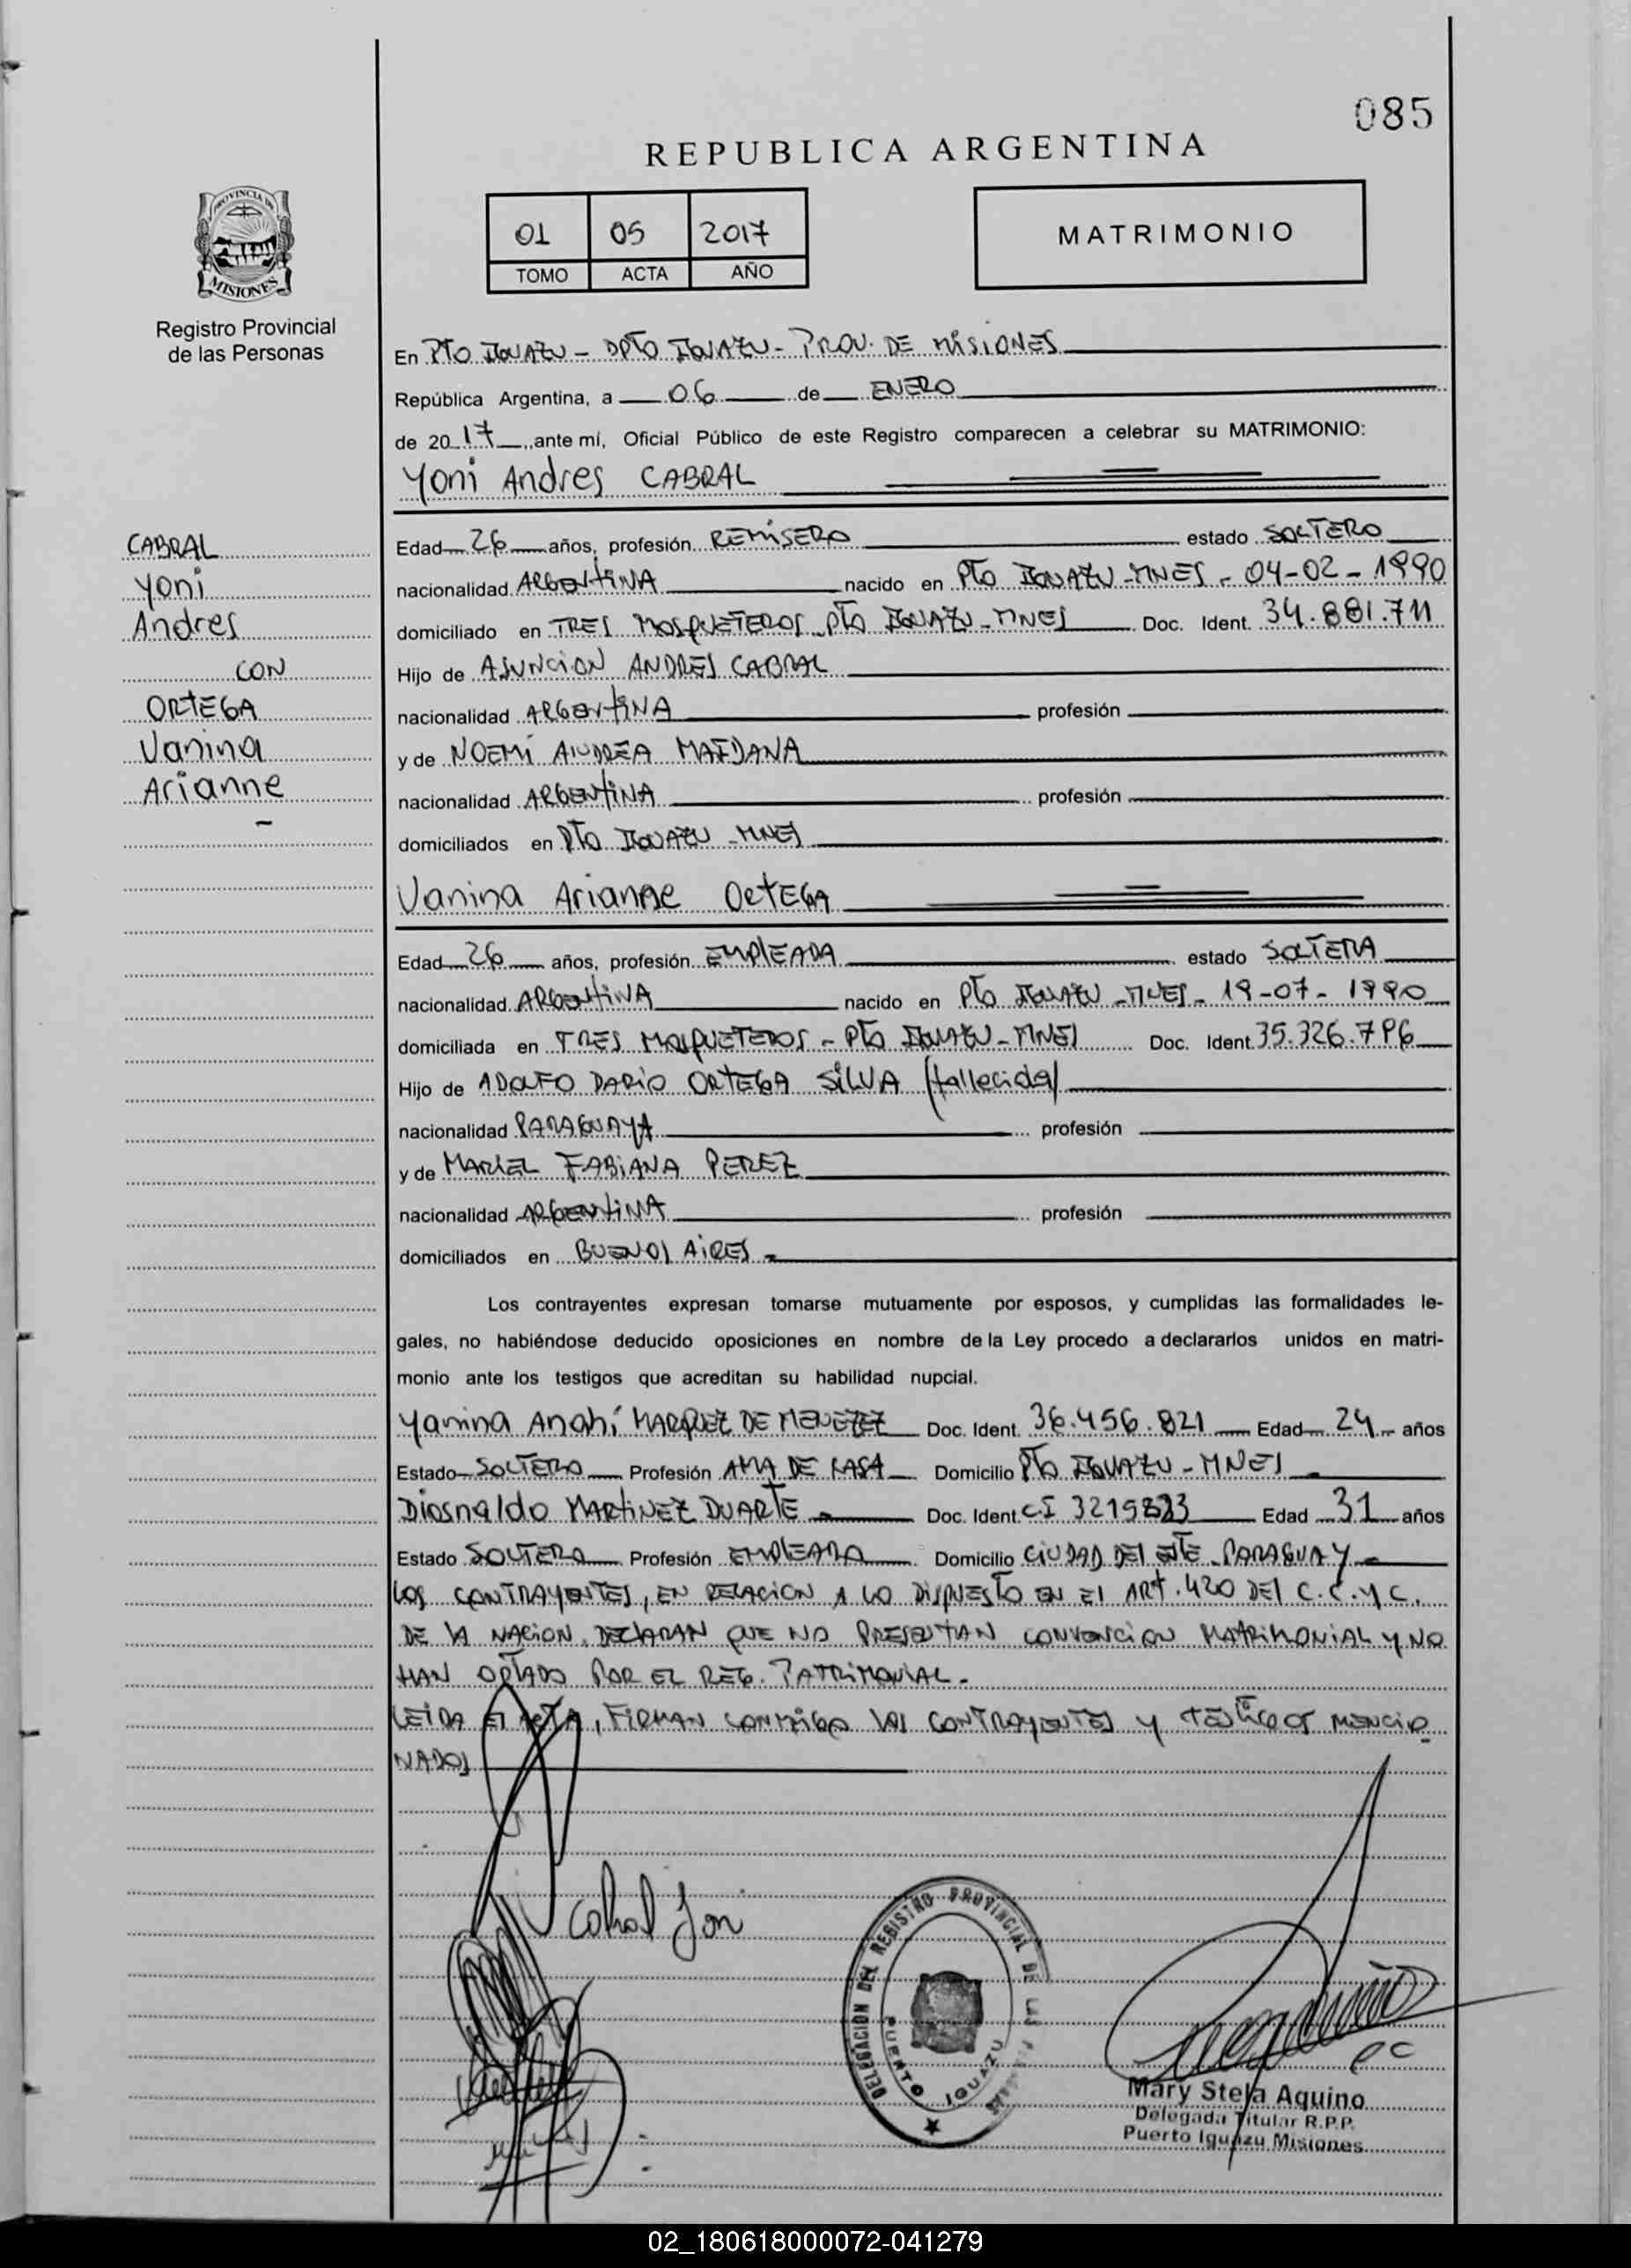 085
REPUBLICA ARGENTINA
01 05 2017
TOMO ACTA AÑO
MATRIMONIO
PROVINCIA DE
MISIONES
Registro Provincial
de las Personas
En PTO IGUAZU - DPTO IGUAZU - PROV. DE MISIONES
República Argentina, a 06 de ENERO
de 2017, ante mí, Oficial Público de este Registro comparecen a celebrar su MATRIMONIO:
Yoni Andres CABRAL
CABRAL
Yoni
Andres
CON
ORTEGA
Vanina
Arianne
-
Edad 26 años, profesión REMISERO estado SOLTERO
nacionalidad ARGENTINA nacido en PTO IGUAZU - MNES - 04-02-1990
domiciliado en TRES MOSQUETEROS PTO IGUAZU - MNES Doc. Ident. 34.881.711
Hijo de ASUNCION ANDRES CABRAL
nacionalidad ARGENTINA profesión
y de NOEMI ANDREA MAIDANA
nacionalidad ARGENTINA profesión
domiciliados en PTO IGUAZU - MNES
Vanina Arianne ORTEGA
Edad 26 años, profesión EMPLEADA estado SOLTERA
nacionalidad ARGENTINA nacido en PTO IGUAZU - MNES - 19-07-1990
domiciliada en TRES MOSQUETEROS - PTO IGUAZU - MNES Doc. Ident. 35.326.796
Hijo de ADOLFO DARIO ORTEGA SILVA (fallecida)
nacionalidad PARAGUAYA profesión
y de MARIEL FABIANA PEREZ
nacionalidad ARGENTINA profesión
domiciliados en BUENOS AIRES -
Los contrayentes expresan tomarse mutuamente por esposos, y cumplidas las formalidades le-
gales, no habiéndose deducido oposiciones en nombre de la Ley procedo a declararlos unidos en matri-
monio ante los testigos que acreditan su habilidad nupcial.
Yanina Anahí MARQUEZ DE MENEZEZ Doc. Ident. 36.456.821 Edad 24 años
Estado SOLTERO Profesión AMA DE CASA Domicilio PTO IGUAZU - MNES -
Diosnaldo MARTINEZ DUARTE - Doc. Ident. C.I 3219823 Edad 31 años
Estado SOLTERO Profesión EMPLEADO Domicilio CIUDAD DEL ESTE - PARAGUAY -
LOS CONTRAYENTES, EN RELACION A LO DISPUESTO EN El ART. 420 DEl C.C. Y C.
DE LA NACION, DECLARAN QUE NO PRESENTAN CONVENCION MATRIMONIAL Y NO
HAN OPTADO POR EL REG. PATRIMONIAL -
LEIDA El ACTA, FIRMAN CONMIGO LOS CONTRAYENTES Y TESTIGOS MENCIO-
NADOS
DELEGACION DEL REGISTRO PROVINCIAL DE LAS PERSONAS
PUERTO IGUAZU
Mary Stela Aquino
Delegada Titular R.P.P.
Puerto Iguazu Misiones
02_180618000072-041279